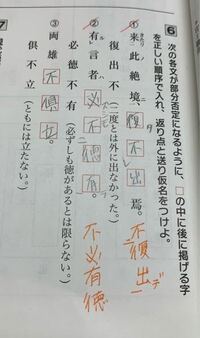 6 次の各文が部分否定になるように、□の中に後に掲げる字
を正しい順序で入れ、返り点と送り仮名をつけよ。
①来此絶境、不復出焉。
復出不(二度とは外に出なかった。)
②有言者、必不徳有。
必徳不有(必ずしも徳があるとは限らない。)
③両雄不倶立。
倶不立(ともには立たない。)
不復出デ
不必有徳
7